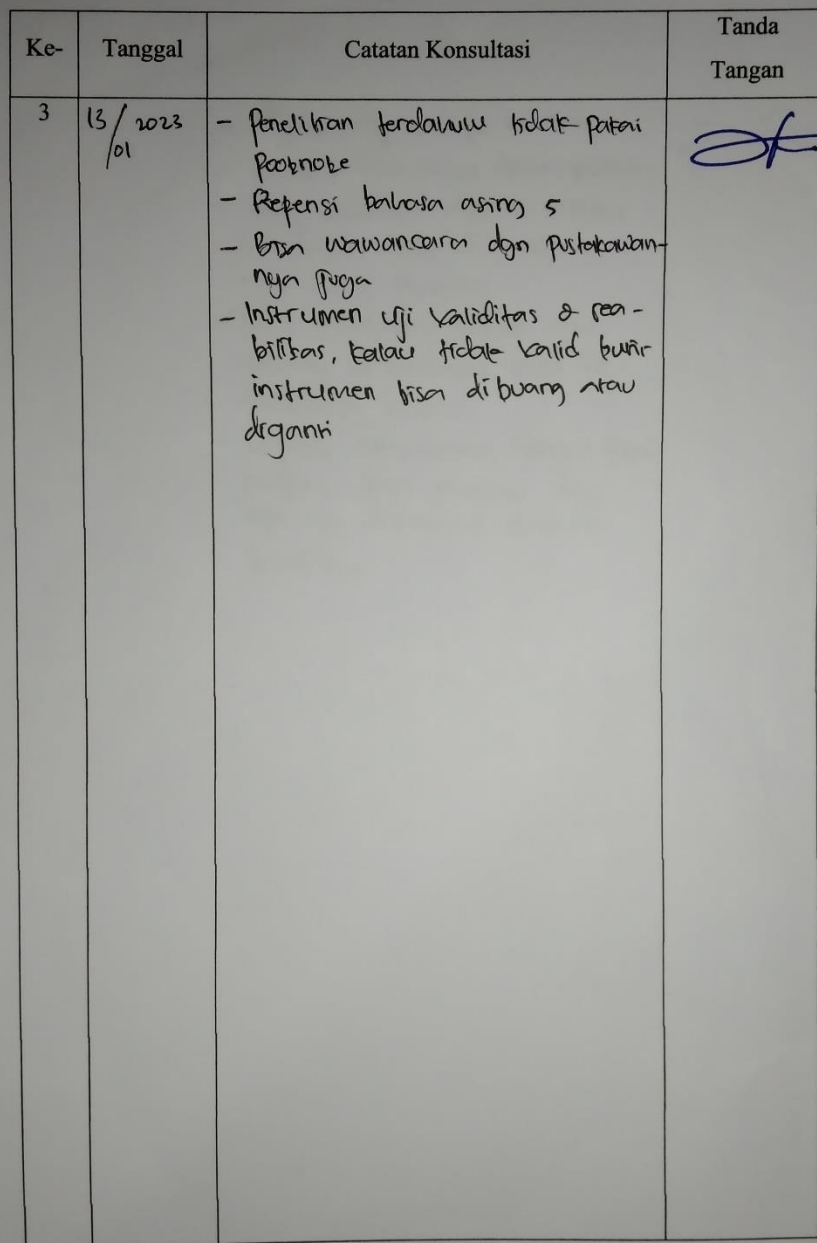 Ke-
Tanggal
Catatan Konsultasi
Tanda
Tangan
3
13/01 2023
- Penelitian terdahulu tidak pakai
footnote
- Refensi bahasa asing 5
- Bisa wawancara dgn pustakawan-
nya juga
- Instrumen uji validitas & rea-
bilitas, kalau tidak valid butir
instrumen bisa dibuang atau
diganti